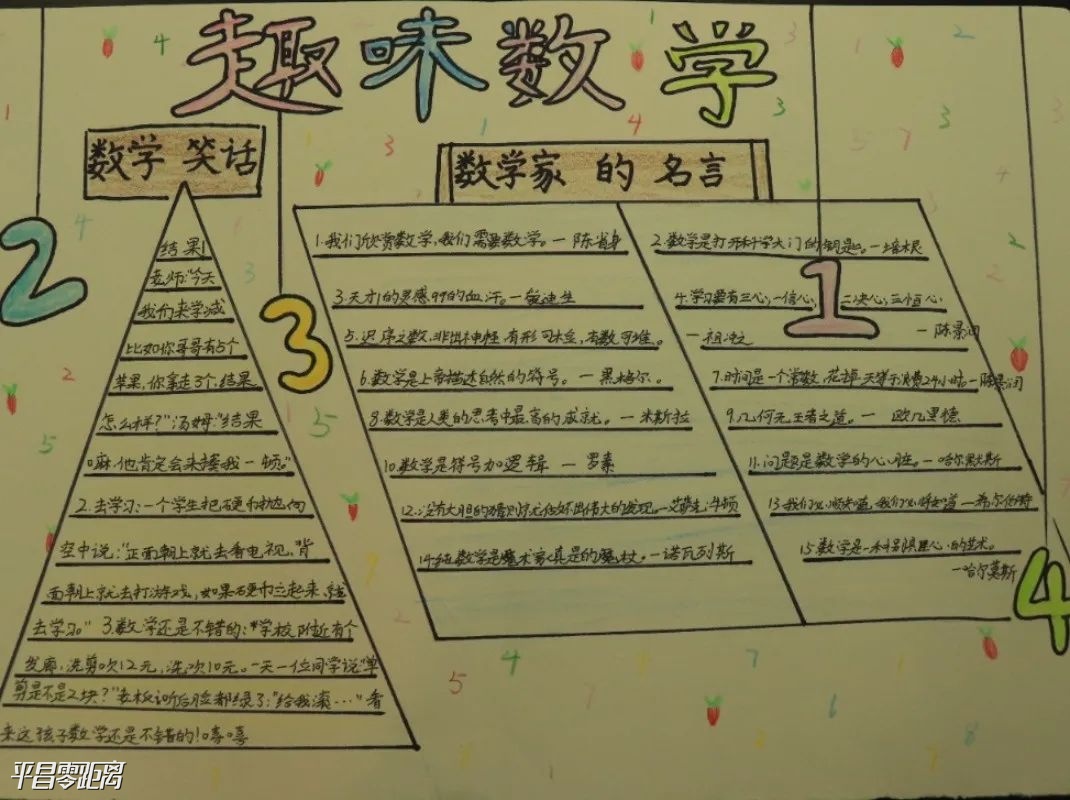 趣味数学
数学 笑话
结果1
老师:“今天
我们来学减
比如你哥哥有5个
苹果,你拿走3个,结果
怎么样?”汤姆:“结果
嘛,他肯定会来揍我一顿。”
2.去学习:一个学生把硬币抛向
空中说:“正面朝上就去看电视,背
面朝上就去打游戏,如果硬币立起来,就
去学习。” 3.数学还是不错的:“学校附近有个
发廊,洗剪吹12元,洗吹10元。一天一位同学说“单
剪是不是2块?”老板听后脸都绿了:“给我滚…”看
来这孩子数学还是不错的!嘻嘻
数学家 的 名言
1.我们欣赏数学,我们需要数学。一 陈省身
2.数学是打开科学大门的钥匙。一培根
3.天才1的灵感99的血汗。一爱迪生
4.学习要有三心,一信心,二决心,三恒心
一 陈景润
5.迟序之数,非出神怪,有形可检,有数可推。
一祖冲之
6.数学是上帝描述自然的符号。一 黑格尔。
7.时间是一个常数,花掉一天等于浪费24小时。一陈景润
8.数学是人类的思考中最高的成就。一 米斯拉
9.几何无王者之道。一 欧几里德
10.数学是符号加逻辑 一 罗素
11.问题是数学的心脏。一哈尔默斯
12.没有大胆的猜测就做不出伟大的发现。一艾萨克·牛顿
13.我们必须知道,我们必将知道 一希尔伯特
14.纯数学是魔术家真是的魔杖。一诺瓦列斯
15.数学是一种别具匠心的艺术。
一哈尔莫斯
2
3
1
4
平昌零距离